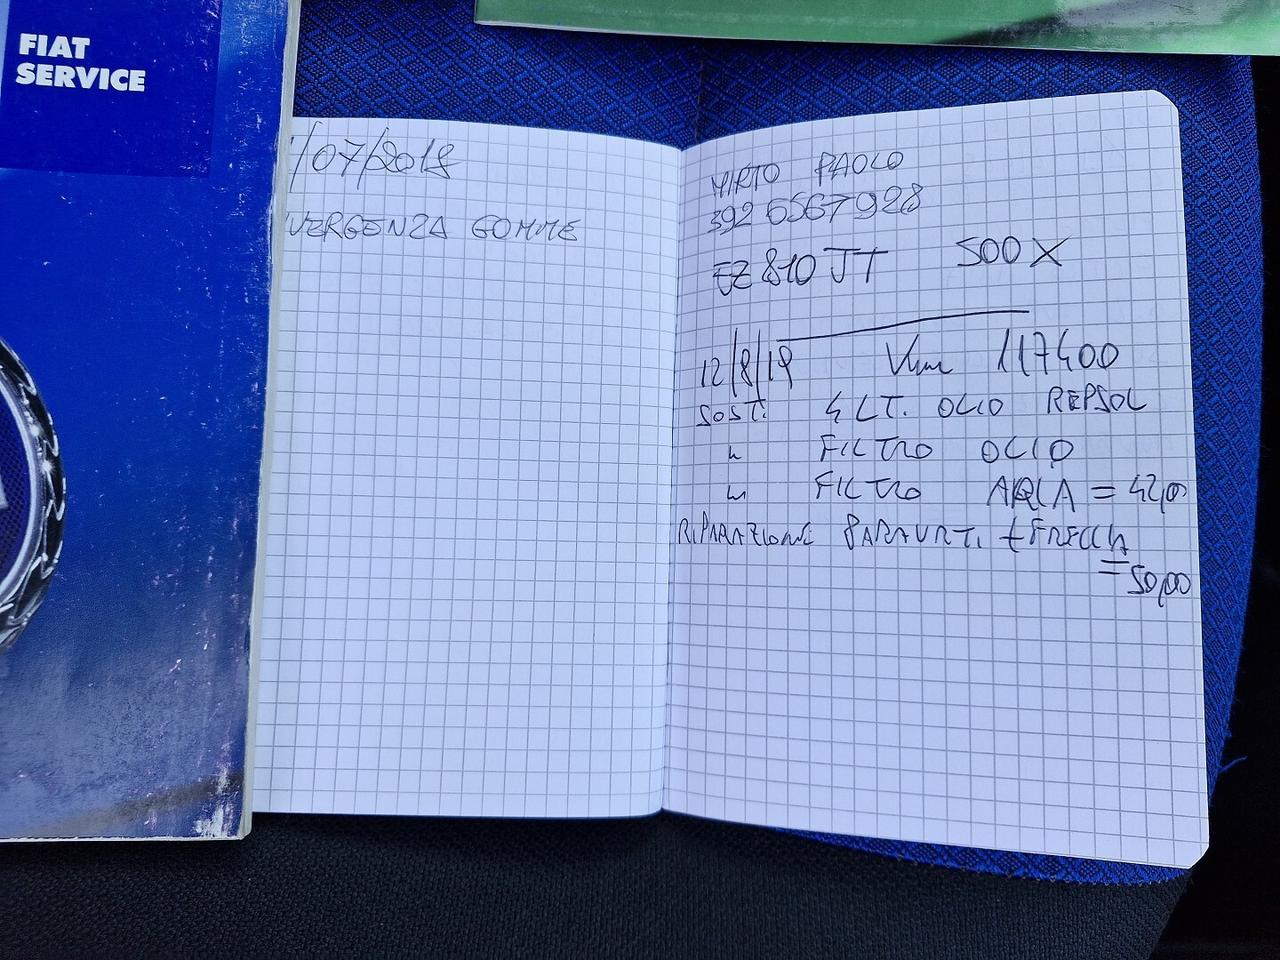 FIAT
SERVICE
/07/2018
VERGENZA GOMME
MIRTO PAOLO
392 6567928
EZ 810 JT 500 X
12/8/19 117400
SOST. 4 LT. OLIO REPSOL
" FILTRO OLIO
" FILTRO ARIA = 42,00
RIPARAZIONE PARAURTI + FRECCIA
= 50,00